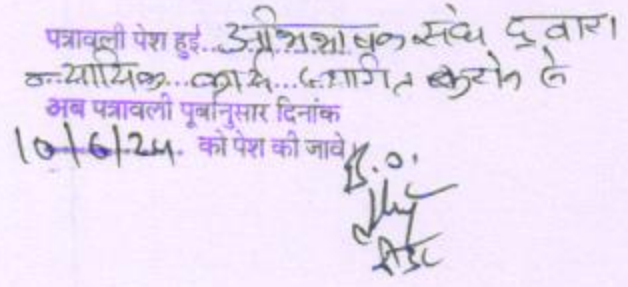 पत्रावली पेश हुई... अभिभाषक संघ द्वारा
न्यायिक... कार्य... स्थगित करने से
अब पत्रावली पूर्वानुसार दिनांक
10/6/24. को पेश की जावे
B.O.